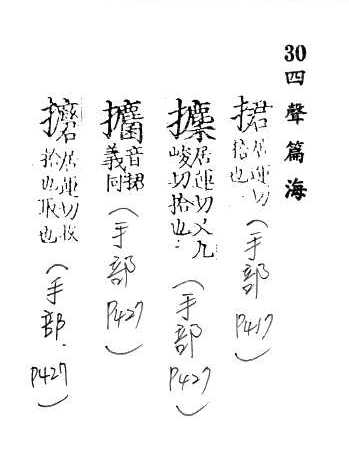 30 四聲篇海
捃 居運切拾也 (手部 P417)
攈 居運切又九峻切拾也 (手部 P427)
攟 音捃義同 (手部 P427)
居運切收拾也取也 (手部 P427)